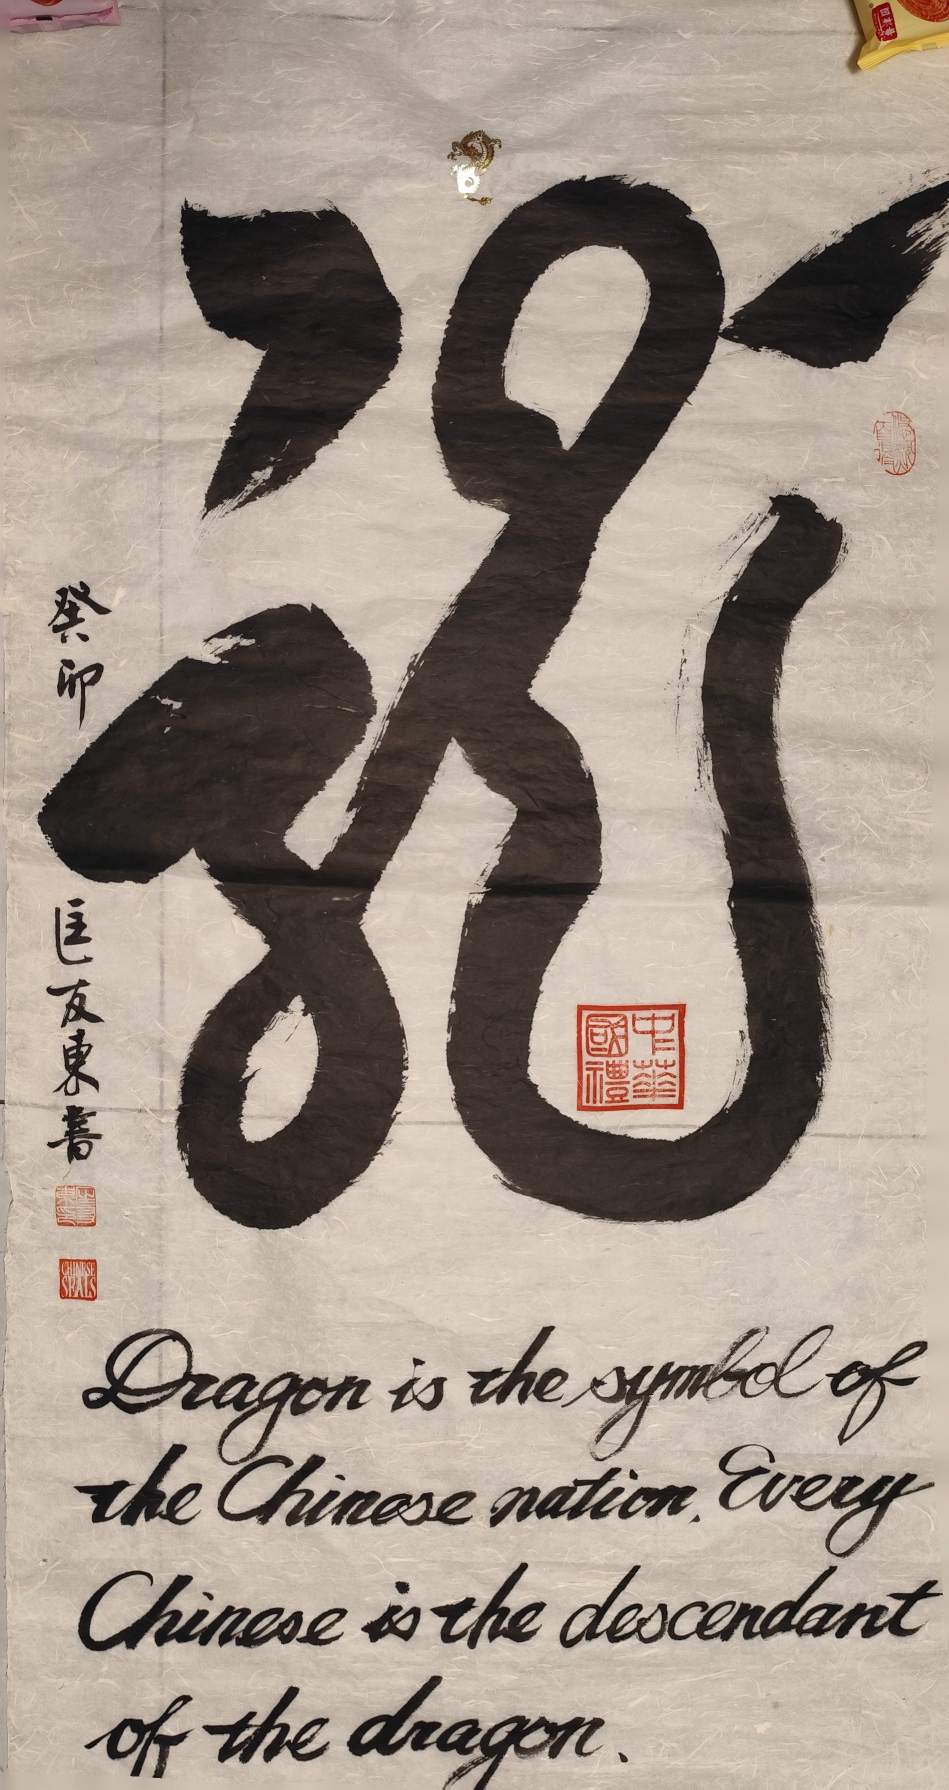 龙
癸卯
匡友東書
中華
國禮
CHINESE
SEALS
Dragon is the symbol of
the Chinese nation. Every
Chinese is the descendant
of the dragon.